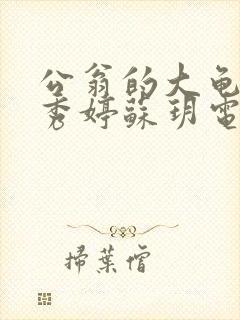 公翁的大龟
秀婷蘇玥電
掃葉僧